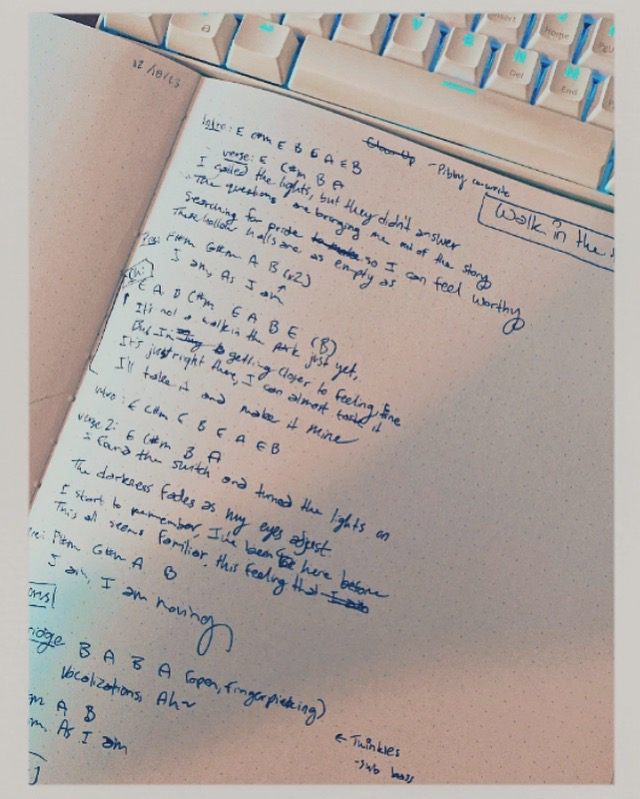 12/18/23
Clean Up - Pibby cowrite
Walk in the
Intro: E C#m E B E A E B
verse: E C#m B A
I called the lights, but they didn't answer
The questions are bringing me out of the story
Searching for pride so I can feel worthy
These hollow halls are as empty as
Pre: F#m G#m A B (x2)
I am, As I am
Ch:
E A D C#m E A B E (B)
It's not a walk in the park just yet,
But I'm getting closer to feeling fine
It's just right there, I can almost taste it
I'll take it and make it mine
intro: E C#m E B E A E B
verse 2: E C#m B A
I found the switch and turned the lights on
The darkness fades as my eyes adjust
I start to remember, I've been here before
This all seems familiar, this feeling that
Pre: F#m G#m A B
I am, I am having
Bridge B A B A (open, fingerpicking)
Vocalizations, Ah~
A B
As I am
← Twinkles
- sub bass
Del
Home
End